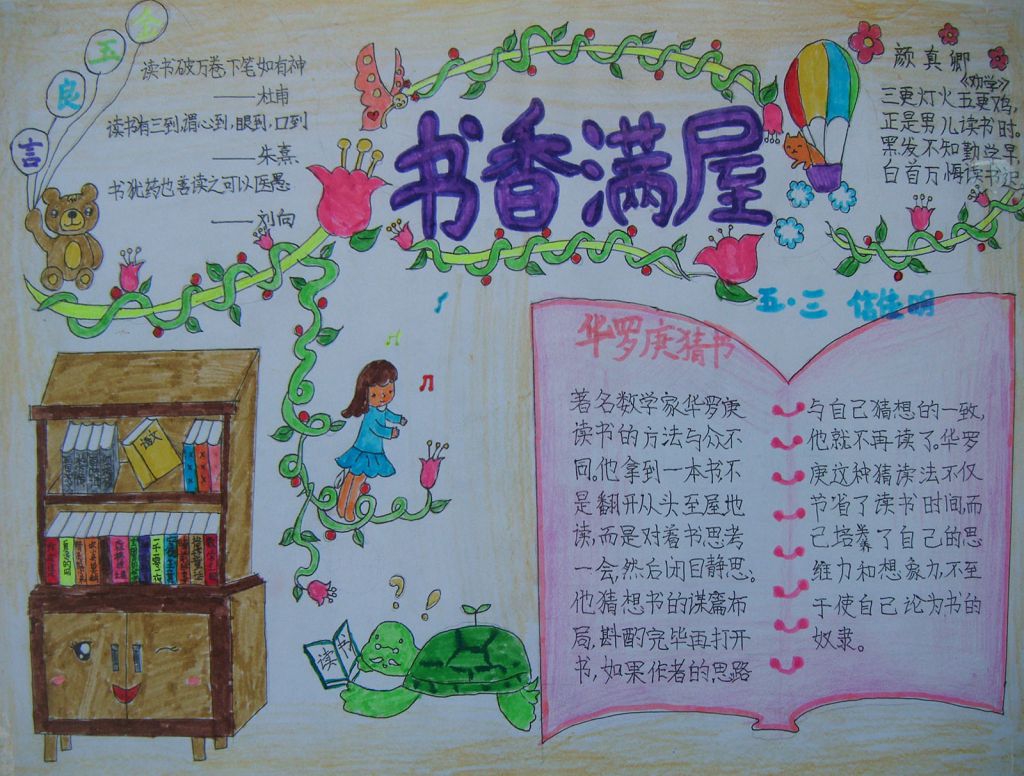 金
玉
良
言
读书破万卷,下笔如有神
——杜甫
读书有三到,谓心到,眼到,口到
——朱熹
书犹药也善读之可以医愚
——刘向
书香满屋
颜真卿
《劝学》
三更灯火五更鸡,
正是男儿读书时。
黑发不知勤学早,
白首方悔读书迟
五·三
华罗庚猜书
著名数学家华罗庚
读书的方法与众不
同。他拿到一本书不
是翻开从头至屋地
读,而是对着书思考
一会,然后闭目静思。
他猜想书的谋篇布
局,斟酌完毕再打开
书,如果作者的思路
与自己猜想的一致,
他就不再读了。华罗
庚这种猜读法不仅
节省了读书时间,而
己培养了自己的思
维力和想象力,不至
于使自己论为书的
奴隶。
语文
读书